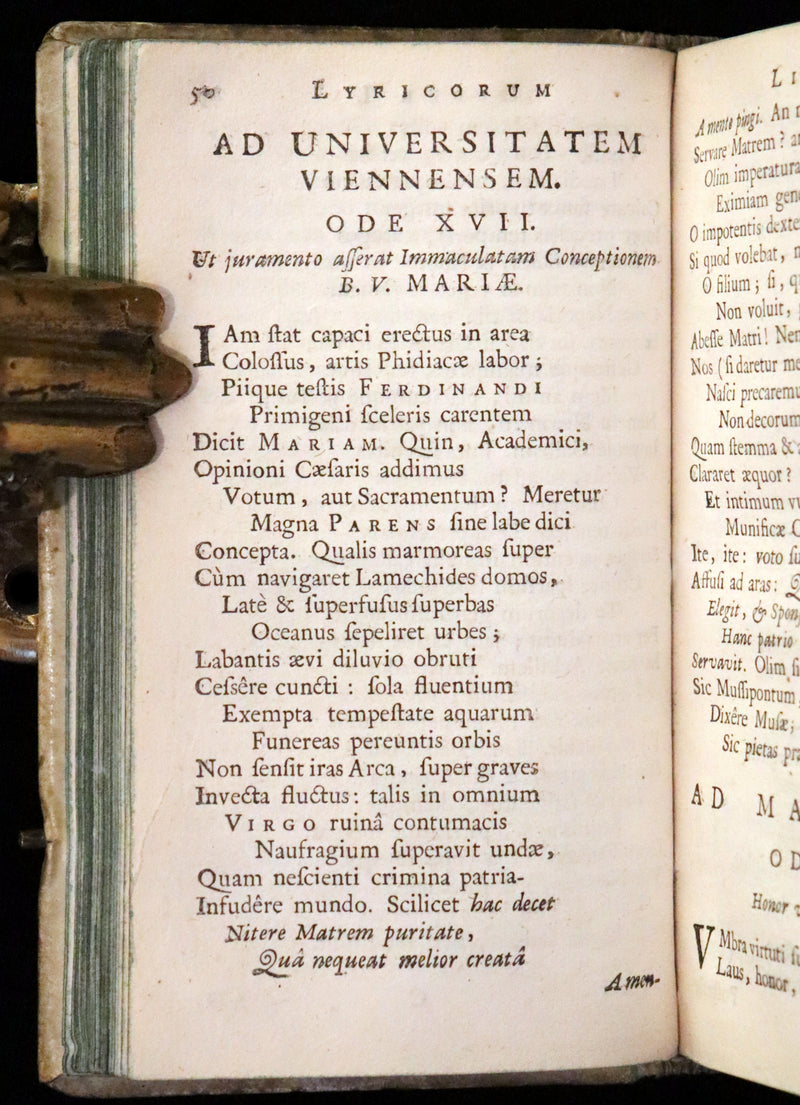 50 LYRICORUM
AD UNIVERSITATEM
VIENNENSEM.
ODE XVII.
Ut juramento aſſerat Immaculatam Conceptionem
B. V. MARIÆ.
IAm ſtat capaci erectus in area
Coloſſus, artis Phidiacæ labor;
Piique teſtis FERDINANDI
Primigeni ſceleris carentem
Dicit MARIAM. Quin, Academici,
Opinioni Cæſaris addimus
Votum, aut Sacramentum? Meretur
Magna PARENS ſine labe dici
Concepta. Qualis marmoreas ſuper
Cùm navigaret Lamechides domos,
Latè & ſuperfuſus ſuperbas
Oceanus ſepeliret urbes;
Labantis ævi diluvio obruti
Ceſsêre cuncti: ſola fluentium
Exempta tempeſtate aquarum
Funereas pereuntis orbis
Non ſenſit iras Arca, ſuper graves
Invecta fluctus: talis in omnium
VIRGO ruinâ contumacis
Naufragium ſuperavit undæ,
Quam neſcienti crimina patria-
Infudêre mundo. Scilicet hac decet
Nitere Matrem puritate,
Quâ nequeat melior creatâ
Amen-
LI
A mente pingi. An
Servare Matrem?
Olim imperatura
Eximiam
O impotentis
Si quod volebat,
O filium; ſi,
Non voluit,
Abeſſe Matri!
Nos (ſi daretur
Naſci precaremu
Non decorum
Quam ſtemma &
Clararet æquor?
Et intimum
Munificæ
Ite, ite: voto
Affuſi ad aras:
Elegit, &
Hanc patrio
Servavit. Olim
Sic Muſſipontum
Dixêre Muſæ;
Sic pietas
AD MA
OD
Honor
VMbra virtuti
Laus, honor,